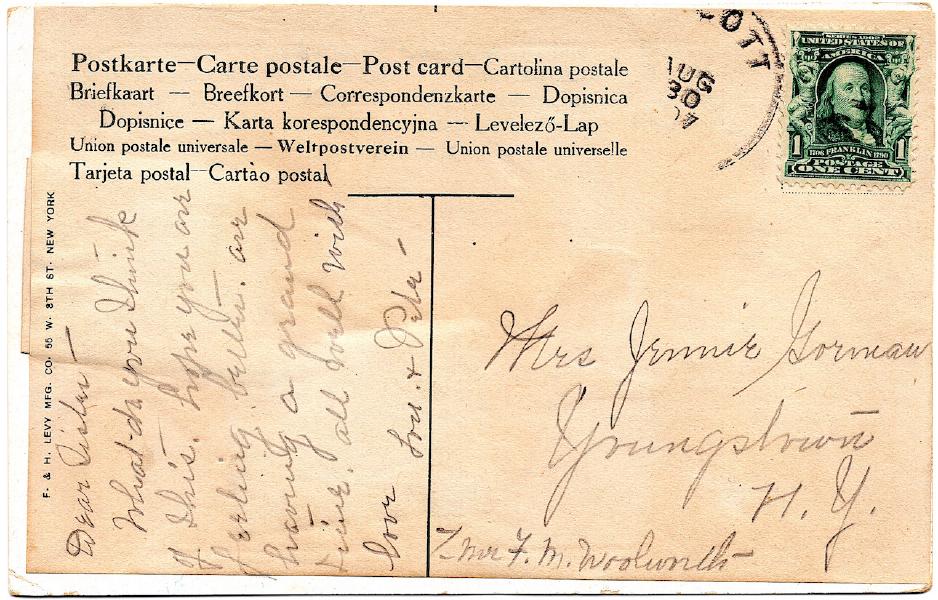 Postkarte—Carte postale—Post card—Cartolina postale
Briefkaart — Breefkort — Correspondenzkarte — Dopisnica
Dopisnice — Karta korespondencyjna — Levelező-Lap
Union postale universale — Weltpostverein — Union postale universelle
Tarjeta postal—Cartào postal
OTT
AUG
30
07
SERIES 1902
UNITED STATES OF
AMERICA
1706 FRANKLIN 1790
1 POSTAGE 1
ONE CENT
F. & H. LEVY MFG. CO. 55 W. 8TH ST. NEW YORK
Dear Sister—
What do you think
of this. hope you are
feeling better. are
having a grand
time. all well with
love Lou. & Pete—
Mrs Jennie Gorman
Youngstown
N. Y.
F. M. Woolworth